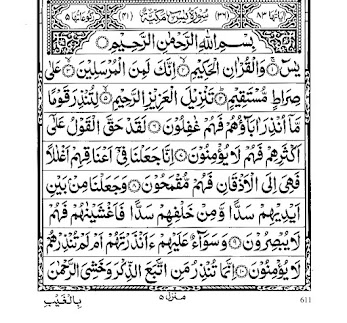 اٰیَاتُهَا ٨٣ (٣٦) سُوْرَةُ يٰسٓ مَكِّيَّةٌ (٤١) رُكُوْعَاتُهَا ٥
بِسْمِ اللّٰهِ الرَّحْمٰنِ الرَّحِيْمِ
يٰسٓ ۚ وَالْقُرْاٰنِ الْحَكِيْمِ ۙ اِنَّكَ لَمِنَ الْمُرْسَلِيْنَ ۙ عَلٰى
صِرَاطٍ مُّسْتَقِيْمٍ ؕ تَنْزِيْلَ الْعَزِيْزِ الرَّحِيْمِ ۙ لِتُنْذِرَ قَوْمًا
مَّاۤ اُنْذِرَ اٰبَآؤُهُمْ فَهُمْ غٰفِلُوْنَ لَقَدْ حَقَّ الْقَوْلُ عَلٰۤى
اَكْثَرِهِمْ فَهُمْ لَا يُؤْمِنُوْنَ اِنَّا جَعَلْنَا فِيْۤ اَعْنَاقِهِمْ اَغْلٰلًا
فَهِيَ اِلَى الْاَذْقَانِ فَهُمْ مُّقْمَحُوْنَ وَجَعَلْنَا مِنْۢ بَيْنِ
اَيْدِيْهِمْ سَدًّا وَّمِنْ خَلْفِهِمْ سَدًّا فَاَغْشَيْنٰهُمْ فَهُمْ
لَا يُبْصِرُوْنَ وَسَوَآءٌ عَلَيْهِمْ ءَاَنْذَرْتَهُمْ اَمْ لَمْ تُنْذِرْهُمْ
لَا يُؤْمِنُوْنَ ١٠ اِنَّمَا تُنْذِرُ مَنِ اتَّبَعَ الذِّكْرَ وَخَشِيَ الرَّحْمٰنَ
بِالْغَيْبِ منزل ٥ 611